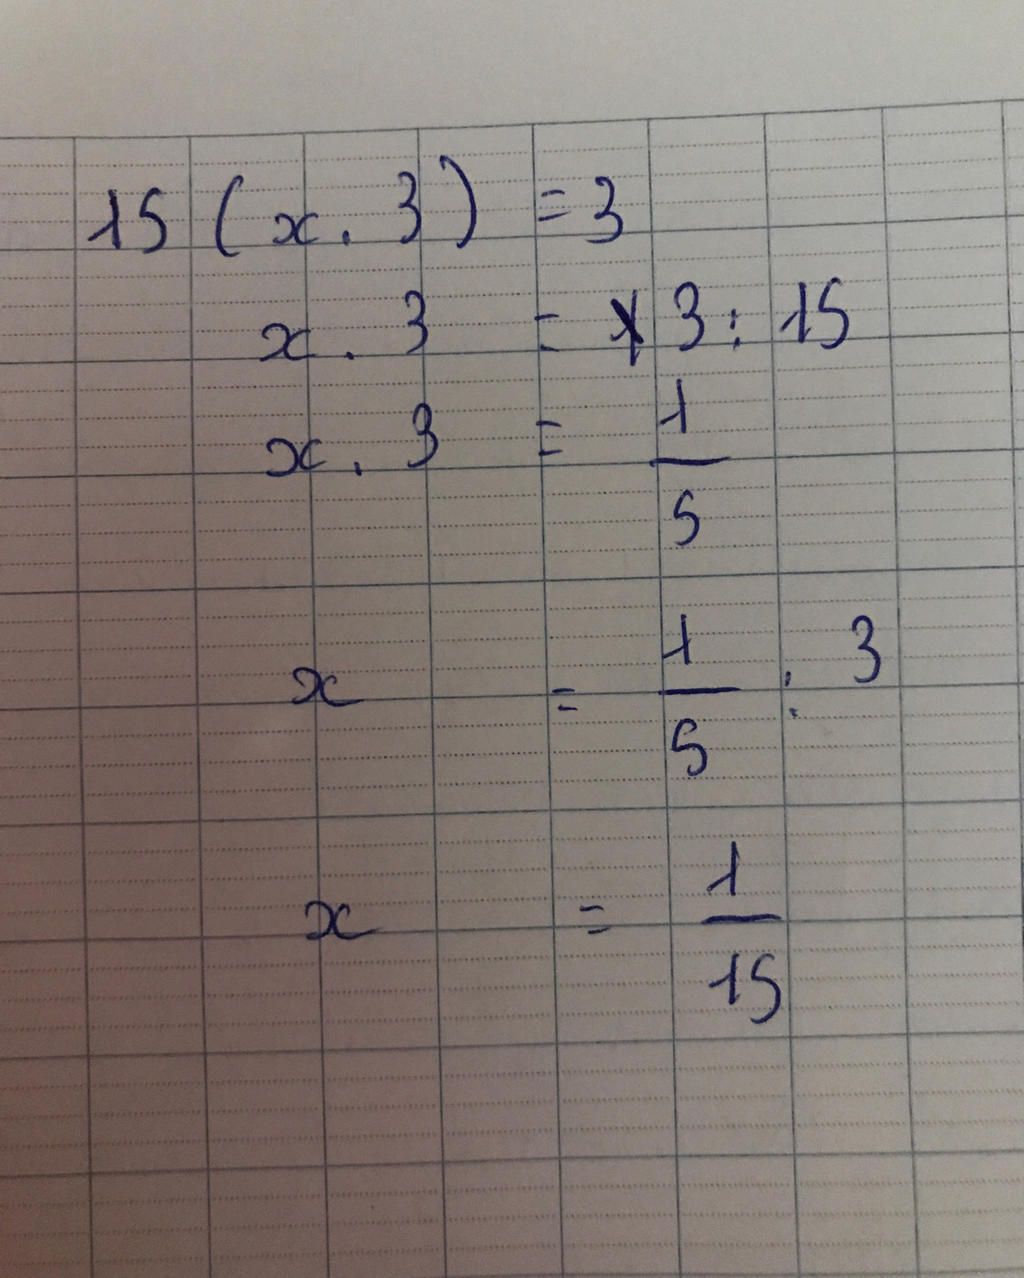 15 ( x . 3 ) = 3
x . 3 = 3 : 15
x . 3 = 1/5
x = 1/5 : 3
x = 1/15